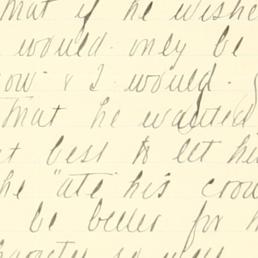 that if he wishe
would only be
now & I would
that he wanted
t best to let hi
he "ate" his crow
be better for h